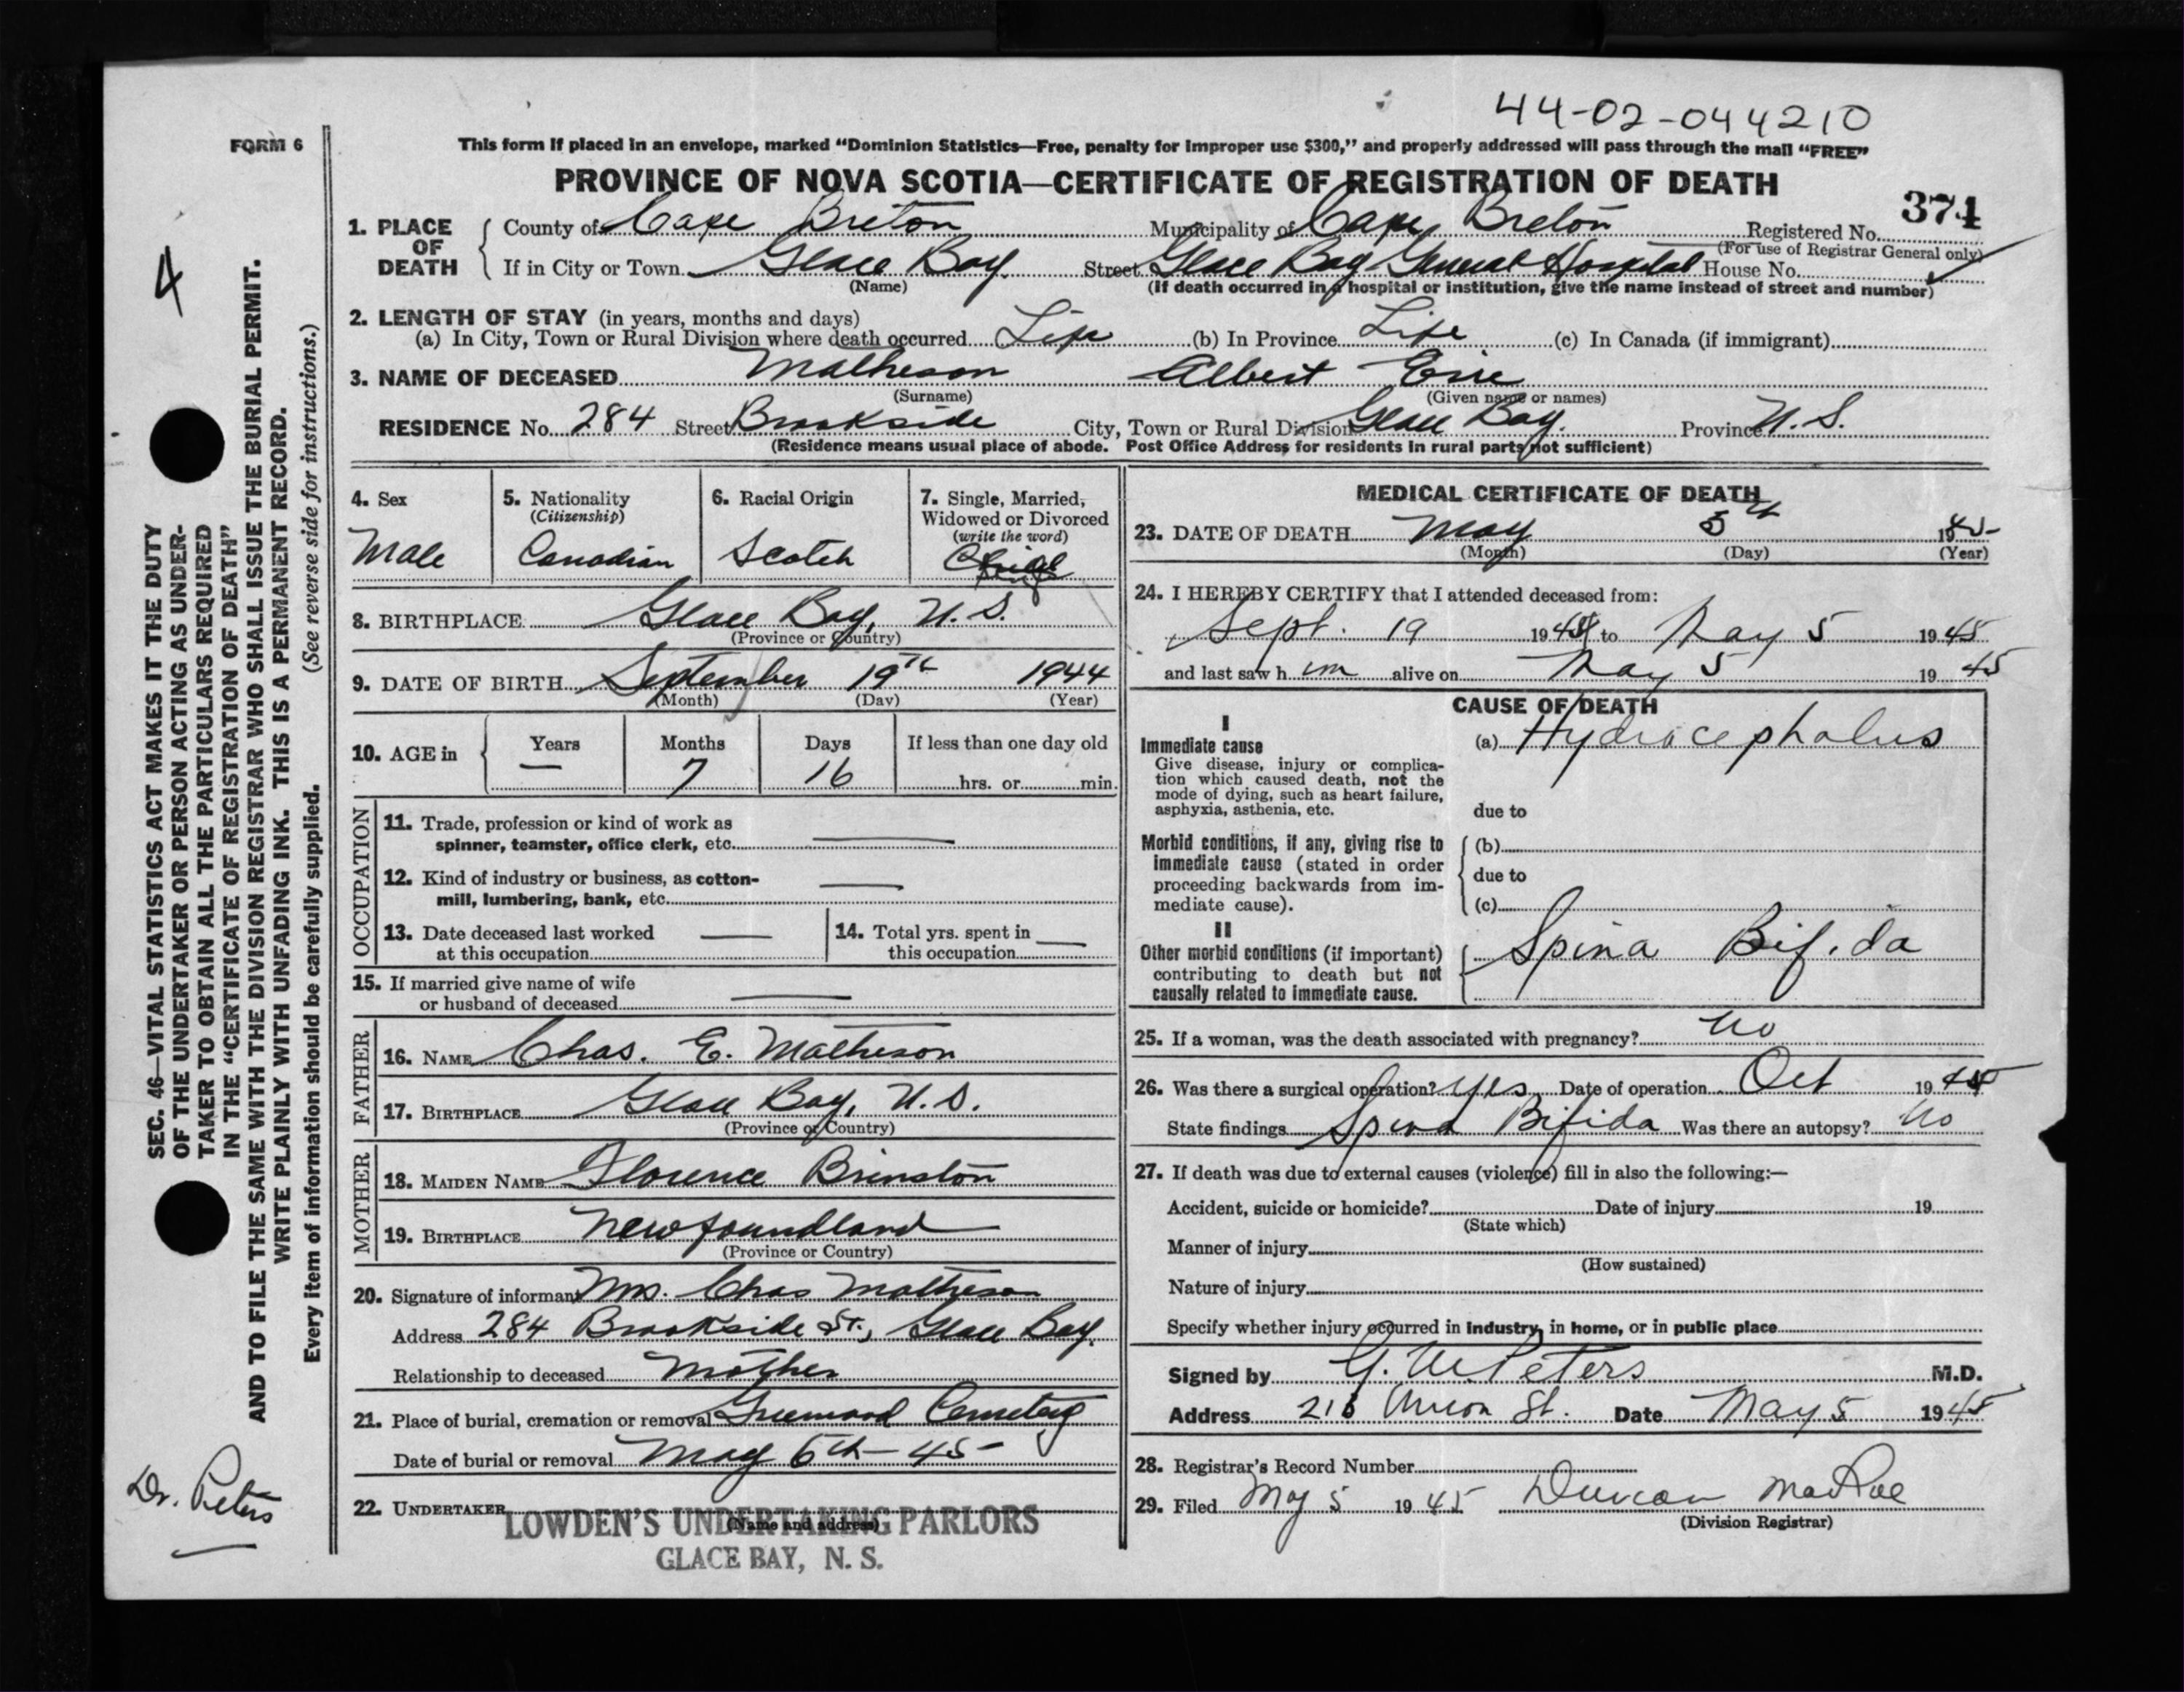 44-02-044210
FORM 6
This form if placed in an envelope, marked "Dominion Statistics—Free, penalty for improper use $300," and properly addressed will pass through the mail "FREE"
PROVINCE OF NOVA SCOTIA—CERTIFICATE OF REGISTRATION OF DEATH
374
1. PLACE OF DEATH
County of Cape Breton Municipality of Cape Breton Registered No.
(For use of Registrar General only)
If in City or Town Glace Bay. Street Glace Bay General Hospital House No.
(Name) (If death occurred in a hospital or institution, give the name instead of street and number)
2. LENGTH OF STAY (in years, months and days)
(a) In City, Town or Rural Division where death occurred Life (b) In Province Life (c) In Canada (if immigrant)
3. NAME OF DECEASED Matheson Albert Eric
(Surname) (Given name or names)
RESIDENCE No. 284 Street Brookside City, Town or Rural Division Glace Bay. Province N.S.
(Residence means usual place of abode. Post Office Address for residents in rural parts not sufficient)
4. Sex
Male
5. Nationality
(Citizenship)
Canadian
6. Racial Origin
Scotch
7. Single, Married,
Widowed or Divorced
(write the word)
8. BIRTHPLACE Glace Bay, N.S.
(Province or Country)
9. DATE OF BIRTH September 19th 1944
(Month) (Day) (Year)
10. AGE in Years Months Days If less than one day old
— 7 16 hrs. or min.
OCCUPATION
11. Trade, profession or kind of work as
spinner, teamster, office clerk, etc. —
12. Kind of industry or business, as cotton-
mill, lumbering, bank, etc. —
13. Date deceased last worked
at this occupation —
14. Total yrs. spent in
this occupation —
15. If married give name of wife
or husband of deceased —
FATHER
16. NAME Chas. E. Matheson
17. BIRTHPLACE Glace Bay, N.S.
(Province or Country)
MOTHER
18. MAIDEN NAME Florence Brinston
19. BIRTHPLACE Newfoundland
(Province or Country)
20. Signature of informant Mrs. Chas Matheson
Address 284 Brookside St., Glace Bay.
Relationship to deceased Mother
21. Place of burial, cremation or removal Greenwood Cemetery
Date of burial or removal May 6th - 45 -
22. UNDERTAKER
(Name and address)
LOWDEN'S UNDERTAKING PARLORS
GLACE BAY, N. S.
MEDICAL CERTIFICATE OF DEATH
23. DATE OF DEATH May 5th 1945-
(Month) (Day) (Year)
24. I HEREBY CERTIFY that I attended deceased from:
Sept. 19 1944 to May 5 1945
and last saw h im alive on May 5 1945
CAUSE OF DEATH
I
Immediate cause
Give disease, injury or complica-
tion which caused death, not the
mode of dying, such as heart failure,
asphyxia, asthenia, etc.
(a) Hydrocephalus
due to
Morbid conditions, if any, giving rise to
immediate cause (stated in order
proceeding backwards from im-
mediate cause).
(b)
due to
(c)
II
Other morbid conditions (if important)
contributing to death but not
causally related to immediate cause.
Spina Bifida
25. If a woman, was the death associated with pregnancy? No
26. Was there a surgical operation? Yes Date of operation Oct 1944
State findings Spina Bifida Was there an autopsy? No
27. If death was due to external causes (violence) fill in also the following:—
Accident, suicide or homicide? Date of injury 19
(State which)
Manner of injury
(How sustained)
Nature of injury
Specify whether injury occurred in industry, in home, or in public place
Signed by G. W. Peters M.D.
Address 216 Union St. Date May 5 1945
28. Registrar's Record Number
29. Filed May 5 1945 Duncan MacRae
(Division Registrar)
4
SEC. 46—VITAL STATISTICS ACT MAKES IT THE DUTY
OF THE UNDERTAKER OR PERSON ACTING AS UNDER-
TAKER TO OBTAIN ALL THE PARTICULARS REQUIRED
IN THE "CERTIFICATE OF REGISTRATION OF DEATH"
AND TO FILE THE SAME WITH THE DIVISION REGISTRAR WHO SHALL ISSUE THE BURIAL PERMIT.
WRITE PLAINLY WITH UNFADING INK. THIS IS A PERMANENT RECORD.
Every item of information should be carefully supplied. (See reverse side for instructions.)
Dr. Peters